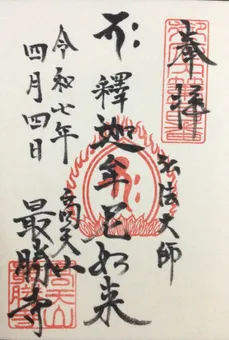 奉拝
弘法大師
釋迦牟尼如来
最勝寺
令和七年
四月四日